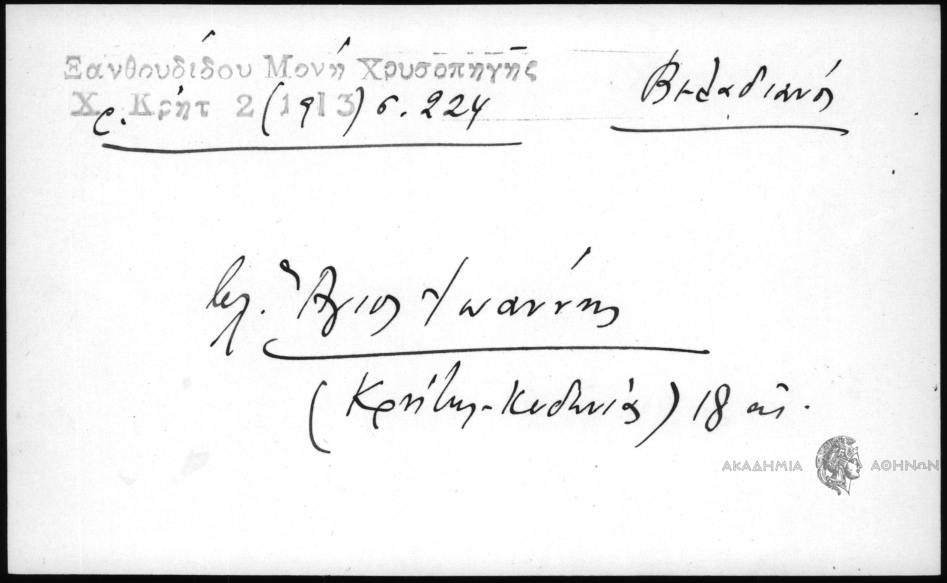 Ξανθουδίδου Μονή Χρυσοπηγής
Χρ. Κρήτ 2 (1913) σ. 224
Βηλαδιανός
βλ. Ἅγιος Ἰωάννης
(Κρήτης-Κυδωνιάς) 18 αἰ.
ΑΚΑΔΗΜΙΑ ΑΘΗΝΩΝ